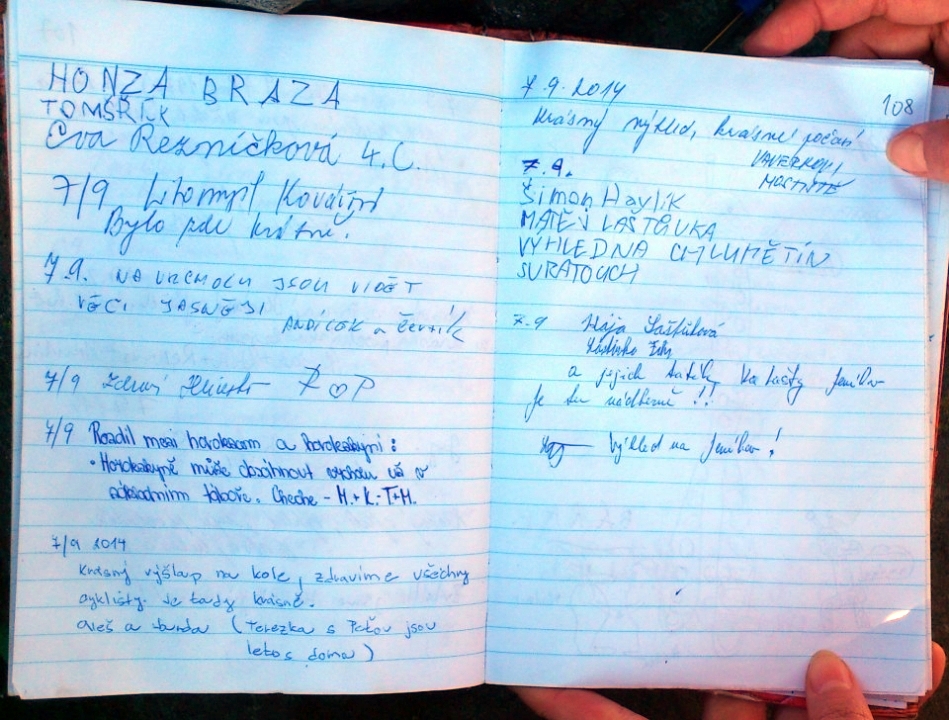 HONZA BRAZA
TOMŠŘÍK
Eva Rezníčková 4.C.
7/9 Litomyšl Kovářní
Bylo zde krásně.
7.9. NA VRCHOLU JSOU VIDĚT
VĚCI JASNĚJI
ANDÍLEK a ČERTÍK
7/9 Zdraví
7/9 Rozdíl mezi horolezcem a horolezkyní :
• Horolezkyně může dosáhnout vrcholu už v
základním táboře. Cheche - M.+K.-T+M.
7/9 2014
Krásný výšlap na kole, zdravíme všechny
cyklisty. Je tady krásně.
Aleš a burda (Terezka s Peťou jsou
letos doma)
7.9.2014
108
Krásný výhled, krásné počasí
VAVERKOVI
7.9.
Šimon Havlík
MATĚJ LAŠTŮVKA
VÝHLED NA CHLUMĚTÍN
SVRATOUCH
7.9
a jejich
Je tu nádherně !!
Výhled na Jeníkov!